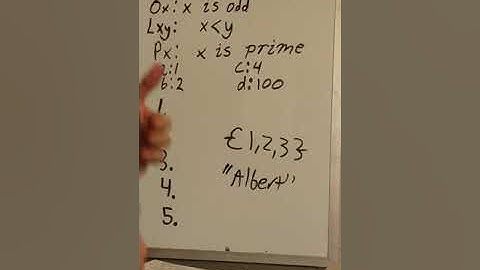 Ox: x is odd
Lxy: x<y
Px: x is prime
:1 c:4
b:2 d:100
1.
{1,2,3}
3.
"Albert"
4.
5.